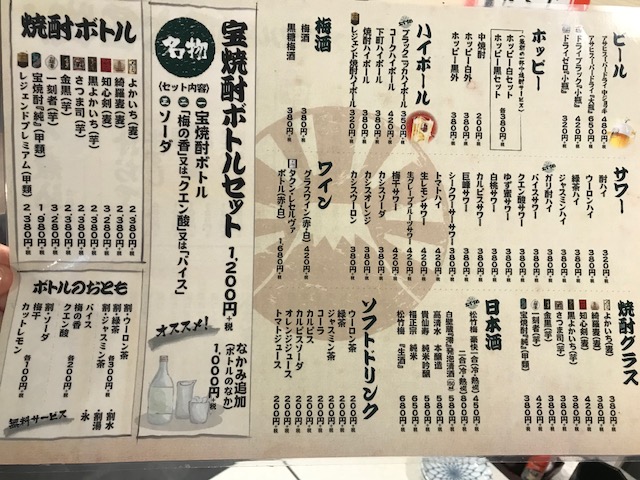 ビール
アサヒスーパードライ 中ジョッキ 480円+税
アサヒスーパードライ『大瓶』 650円+税
ドライブラック『小瓶』 420円+税
ドライゼロ『小瓶』 320円+税
ホッピー
ホッピー白セット
ホッピー黒セット 各380円+税
中焼酎 200円+税
ホッピー白外 380円+税
ホッピー黒外 380円+税
ハイボール
ブラックニッカハイボール 350円+税
コークハイボール 420円+税
下町ハイボール 380円+税
焼酎ハイボール 380円+税
レジェンド焼酎ハイボール 320円+税
梅酒
梅酒 380円+税
黒糖梅酒 380円+税
サワー
酎ハイ 322円+税
ウーロンハイ 380円+税
緑茶ハイ 380円+税
ジャスミンハイ 380円+税
ガリ酎ハイ 380円+税
バイスサワー 380円+税
クエン酸サワー 380円+税
ゆず蜜サワー 390円+税
白桃サワー 380円+税
カルピスサワー 380円+税
巨峰サワー 380円+税
シークワーサーサワー 380円+税
トマトハイ 420円+税
生レモンサワー 420円+税
生グレープフルーツサワー 420円+税
梅干サワー 420円+税
カシスソーダ 380円+税
カシスオレンジ 380円+税
カシスウーロン 380円+税
ワイン
グラスワイン(赤・白) 420円+税
タクン・レゼルヴァ
ボトル(赤・白) 1,680円+税
焼酎グラス
よかいち(麦) 380円+税
綺羅麦(麦) 380円+税
知心剣(麦) 420円+税
黒よかいち(芋) 380円+税
さつま司(芋) 380円+税
金黒(芋) 380円+税
一刻者(芋) 420円+税
宝焼酎『純』(甲類) 380円+税
日本酒
松竹梅 豪快 一合(冷・熱) 450円+税
二合(冷・熱) 800円+税
白壁蔵『澪』発泡清酒
高清水 本醸造 580円+税
貴仙寿 純米吟醸
福正宗 純米
松竹梅『生酒』 680円+税
ソフトドリンク
ウーロン茶 200円+税
緑茶 200円+税
ジャスミン茶 200円+税
コーラ 200円+税
カルピス 200円+税
カルピスソーダ 200円+税
オレンジジュース 200円+税
トマトジュース 200円+税
名物
宝焼酎ボトルセット 1,200円+税
(セット内容)
一 宝焼酎ボトル
二 「梅の香」又は「クエン酸」又は「バイス」
三 ソーダ
オススメ!
なかみ追加
(ボトルのなか)
1,000円+税
焼酎ボトル
よかいち(麦) 2,380円+税
綺羅麦(麦) 2,380円+税
知心剣(麦) 3,280円+税
黒よかいち(芋) 2,380円+税
さつま司(芋) 2,380円+税
金黒(芋) 2,380円+税
一刻者(芋) 3,280円+税
宝焼酎『純』(甲類) 1,980円+税
レジェンドプレミアム(甲類) 2,380円+税
ボトルのおとも
割ウーロン茶
割緑茶
割ジャスミン茶 各300円+税
バイス
梅の香
クエン酸 各200円+税
割ソーダ
梅干
カットレモン 各100円+税
無料サービス
・割水
・割湯
・氷